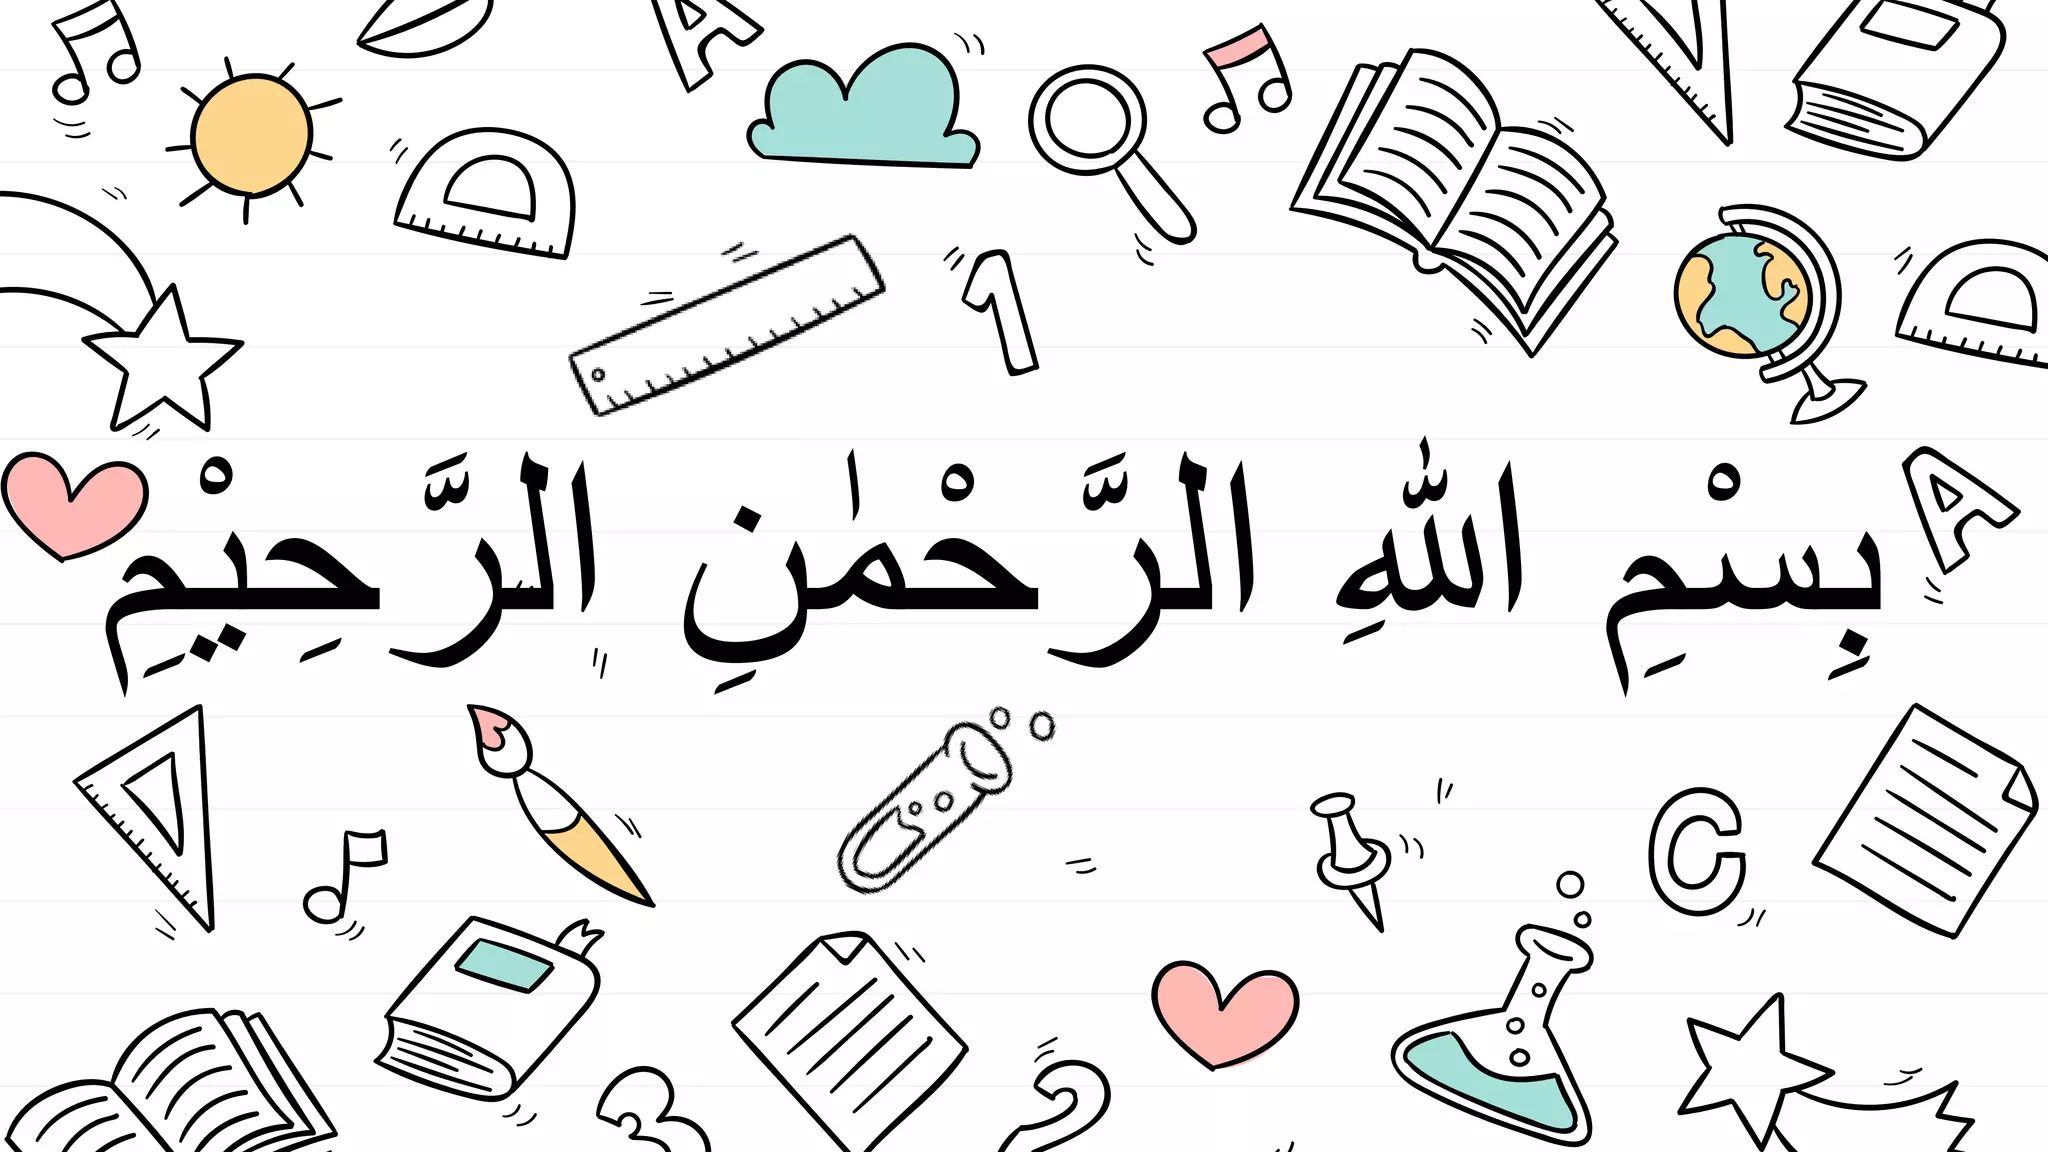 A
1
بِسْمِ اللّٰهِ الرَّحْمٰنِ الرَّحِيْمِ
A
C
3
2